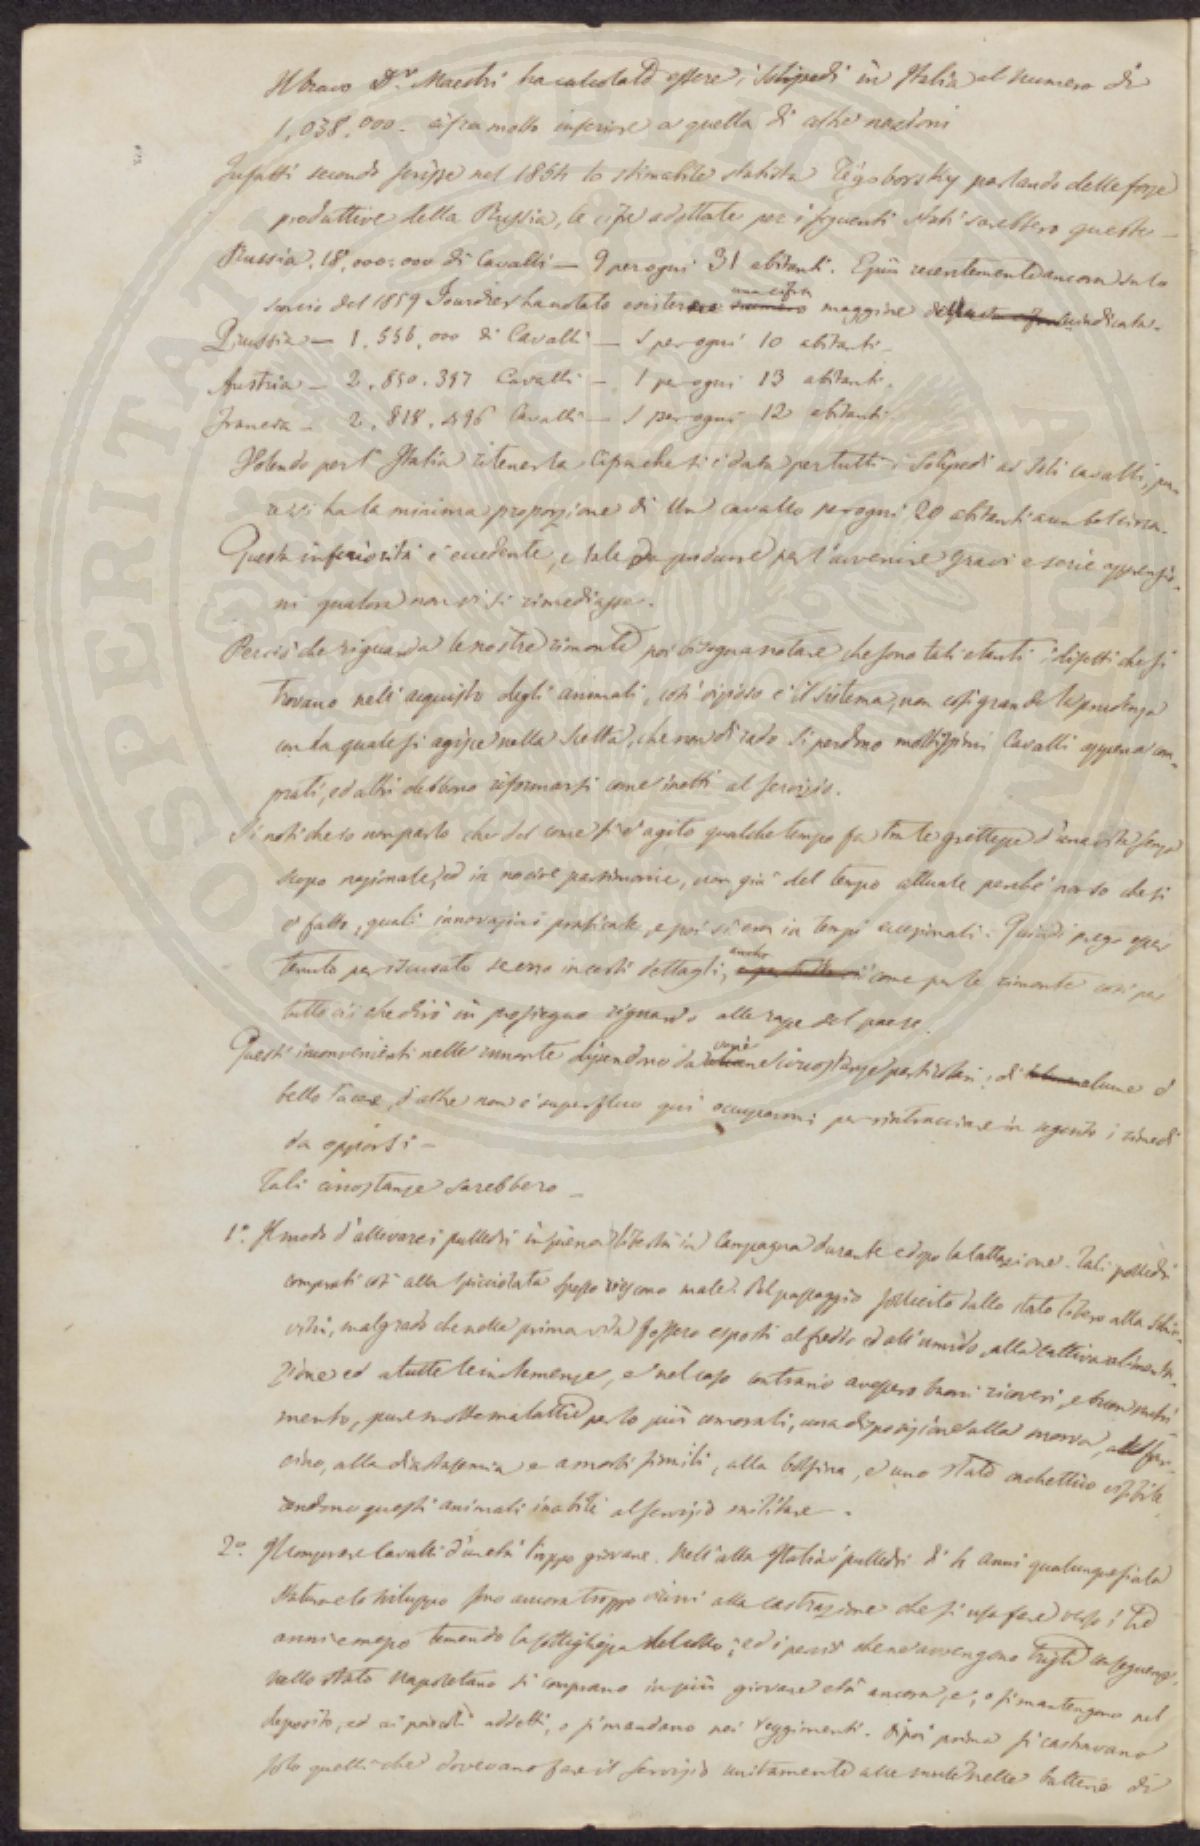 Il bravo Dr. Maestri ha calcolato essere i solipedi in Italia al numero di
1,038,000. cifra molto inferiore a quella di altre nazioni
Infatti secondo scrisse nel 1854 lo stimabile statista Tegoborskiy parlando delle forze
produttive della Russia, le cifre adottate per i seguenti Stati sarebbero queste—
Russia. 18.000.000 di Cavalli — 9 per ogni 31 abitanti. E più recentemente ancora sullo
scorcio del 1859 Jourdier ha notato esistere una cifra maggiore della suindicata.
Prussia — 1.556.000 di Cavalli — 1 per ogni 10 abitanti—
Austria — 2.850.397 Cavalli — 1 per ogni 13 abitanti.
Francia — 2.818.496 Cavalli — 1 per ogni 12 abitanti.
Volendo per l'Italia ritenersi la cifra che si è data per tutti i Solipedi ai soli cavalli, pu-
re vi ha la minima proporzione di Un cavallo per ogni 20 abitanti a un bel circa.
Questa inferiorità è eccedente, e tale da produrre per l'avvenire gravi e serie apprensio-
ni qualora non vi si rimediasse.
Perciò che riguarda le nostre rimonte poi bisogna notare che sono tali e tanti i difetti che si
trovano nell'acquisto degli animali, così vizioso è il sistema, non così grande la prudenza
con la quale si agisce nella scelta, che non di rado si perdono moltissimi Cavalli appena com-
prati, ed altri debbono riformarsi come inetti al servizio.
Si noti che io non parlo che del come si è agito qualche tempo fa tra le grettezze d'una vita senza
scopo razionale, ed in nocive parsimonie, non già del tempo attuale perché non so che si
è fatto, quali innovazioni praticate, e poi si era in tempi eccezionali. Quindi prego esser
tenuto per iscusato se erro in certi dettagli, anche come per le rimonte così per
tutto ciò che dirò in prosieguo riguardo alle razze del paese.
Questi inconvenienti nelle rimonte dipendono da varie circostanze particolari; di alcune è
bello tacere, d'altre non è superfluo quì occuparmi per rintracciare in seguito i rimedi
da opporsi—
Tali circostanze sarebbero—
1°. Il modo d'allevare i pulledri in piena libertà in Campagna durante e dopo la lattazione. Tali polledri
comprati così alla spicciolata spesso riescono male. Pel passaggio sollecito dallo stato libero alla schia-
vitù, malgrado che nella prima vita fossero esposti al freddo ed all'umido, alla cattiva alimenta-
zione ed a tutte le intemenze, e nel caso contrario avessero buoni ricoveri, e buon nutri-
mento, pure molte malattie per lo più umorali, una disposizione alla morva, al far-
cino, alla diastasemia e a morbi simili, alla bolsina, e uno stato cachettico visibile
rendono questi animali inabili al servizio militare—.
2°. Il comperare Cavalli d'un'età troppo giovane. Nell'alta Italia i pulledri di 4 anni qualunque sia la
statura e lo sviluppo sono ancora troppo vicini alla castrazione che si usa fare verso i tre
anni e mezzo temendo la sottigliezza del collo; ed i perciò che ne avvengono triste conseguenze.
Nello stato Napoletano si comprano in più giovane età ancora, e; o si mantengono nel
deposito, ed ai addetti, o si mandano nei reggimenti. Dipoi prima si castravano
solo quelli che dovevano fare il servizio unitamente alle mule nelle batterie di